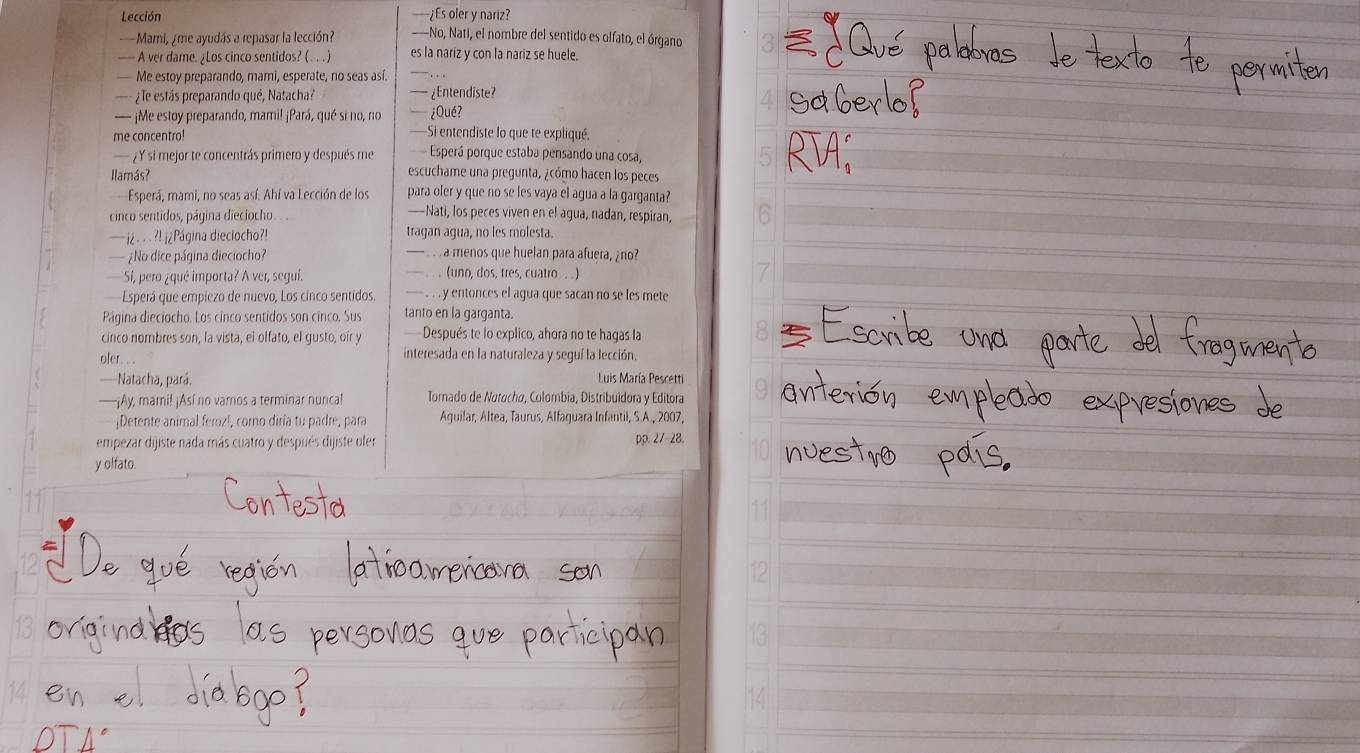 Lección
—Mami, ¿me ayudás a repasar la lección?
— A ver dame. ¿Los cinco sentidos? (. . .)
— Me estoy preparando, mami, esperate, no seas así.
— ¿Te estás preparando qué, Natacha?
— ¡Me estoy preparando, mami! ¡Pará, qué si no, no
me concentro!
— ¿Y si mejor te concentrás primero y después me
llamás?
—Esperá, mami, no seas así. Ahí va Lección de los
cinco sentidos, página dieciocho. . .
—¡¿. . . ?! ¡¿Página dieciocho?!
— ¿No dice página dieciocho?
—Sí, pero ¿qué importa? A ver, seguí.
—Esperá que empiezo de nuevo, Los cinco sentidos.
Página dieciocho. Los cinco sentidos son cinco. Sus
cinco nombres son, la vista, el olfato, el gusto, oír y
oler. . .
—Natacha, pará.
—¡Ay, mami! ¡Así no vamos a terminar nunca!
—¡Detente animal feroz!, como diría tu padre, para
empezar dijiste nada más cuatro y después dijiste oler
y olfato.
—¿Es oler y nariz?
—No, Nati, el nombre del sentido es olfato, el órgano
es la nariz y con la nariz se huele.
—. . .
— ¿Entendiste?
— ¿Qué?
—Si entendiste lo que te expliqué.
—Esperá porque estaba pensando una cosa,
escuchame una pregunta, ¿cómo hacen los peces
para oler y que no se les vaya el agua a la garganta?
—Nati, los peces viven en el agua, nadan, respiran,
tragan agua, no les molesta.
—. . .a menos que huelan para afuera, ¿no?
—. . . (uno, dos, tres, cuatro. . .)
—. . .y entonces el agua que sacan no se les mete
tanto en la garganta.
—Después te lo explico, ahora no te hagas la
interesada en la naturaleza y seguí la lección.
Luis María Pescetti
Tornado de Natacha, Colombia, Distribuidora y Editora
Aguilar, Altea, Taurus, Alfaguara Infantil, S.A., 2007,
pp. 27-28.
Contesta
¿De qué región latinoamericana son
originarias las personas que participan
en el diálogo?
RTA:
¿Qué palabras de texto te permiten
saberlo?
RTA:
Escribe una parte del fragmento
anterión empleado expresiones de
nuestro país.